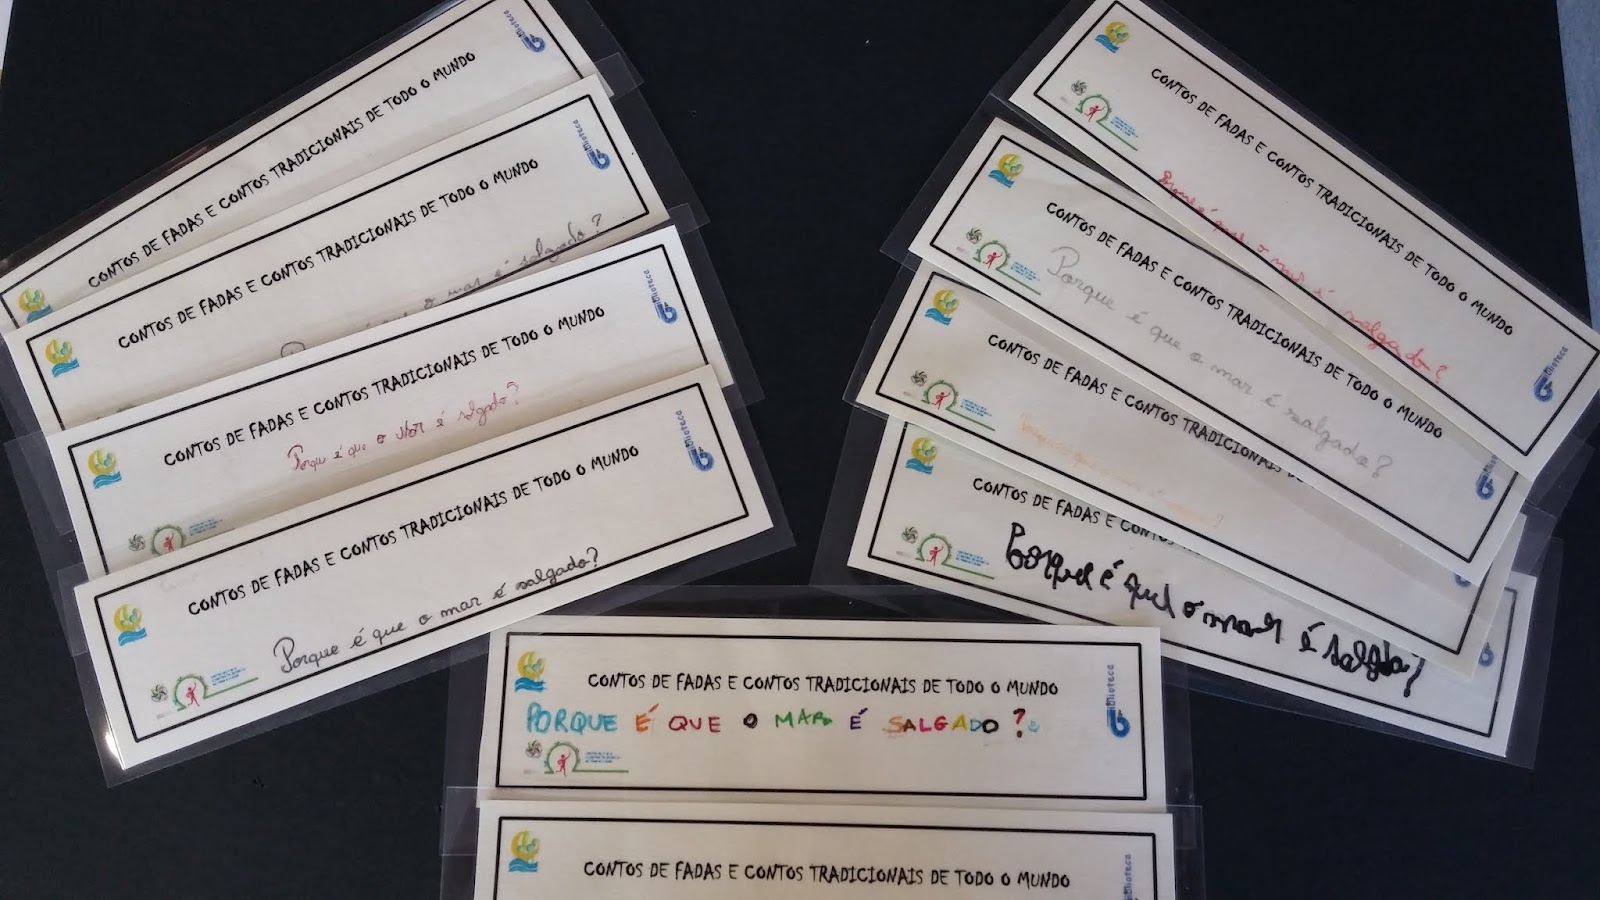 biblioteca
CONTOS DE FADAS E CONTOS TRADICIONAIS DE TODO O MUNDO
biblioteca
CONTOS DE FADAS E CONTOS TRADICIONAIS DE TODO O MUNDO
o mar é salgado?
biblioteca
CONTOS DE FADAS E CONTOS TRADICIONAIS DE TODO O MUNDO
Porqu é que o mar é salgado?
biblioteca
CONTOS DE FADAS E CONTOS TRADICIONAIS DE TODO O MUNDO
Porque é que o mar é salgado?
CONTOS DE FADAS E CONTOS TRADICIONAIS DE TODO O MUNDO
Porque é que o mar é salgado?
biblioteca
CONTOS DE FADAS E CONTOS TRADICIONAIS DE TODO O MUNDO
Porque é que o mar é salgado?
CONTOS DE FADAS E CONTOS TRADICIONAIS
CONTOS DE FADAS E
Porque é que o mar é salgado?
CONTOS DE FADAS E CONTOS TRADICIONAIS DE TODO O MUNDO
PORQUE É QUE O MAR É SALGADO?
biblioteca
CONTOS DE FADAS E CONTOS TRADICIONAIS DE TODO O MUNDO
biblioteca